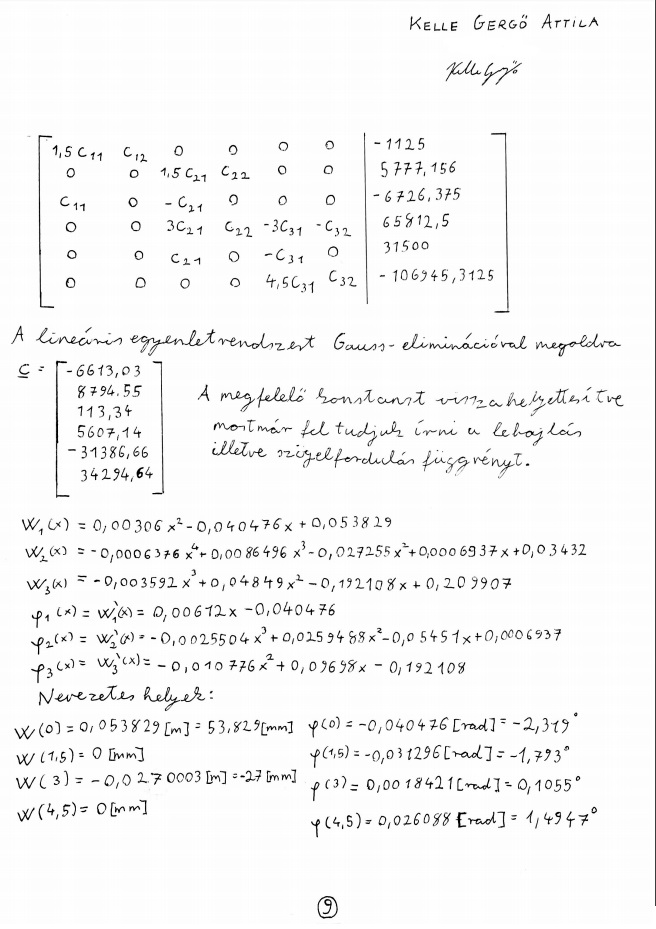 KELLE GERGŐ ATTILA
Kelle Gergő
1,5 C11 C12 0 0 0 0 -1125
0 0 1,5 C21 C22 0 0 5777,156
C11 0 -C21 0 0 0 -6726,375
0 0 3C21 C22 -3C31 -C32 65812,5
0 0 C21 0 -C31 0 31500
0 0 0 0 4,5C31 C32 -106945,3125
A lineáris egyenletrendszert Gauss-eliminációval megoldva
C =
-6613,03
8794.55
113,34
5607,14
-31386,66
34294,64
A megfelelő konstanst visszahelyettesítve
mostmár fel tudjuk írni a lehajlás
illetve szögelfordulás függvényt.
W1(x) = 0,00306 x² - 0,040476x + 0,053829
W2(x) = -0,0006376 x⁴ + 0,0086496 x³ - 0,027255x² + 0,0006937x + 0,03432
W3(x) = -0,003592 x³ + 0,04849x² - 0,192108x + 0,209907
φ1(x) = W1'(x) = 0,00612x - 0,040476
φ2(x) = W2'(x) = -0,0025504 x³ + 0,0259488x² - 0,05451x + 0,0006937
φ3(x) = W3'(x) = -0,010776x² + 0,09698x - 0,192108
Nevezetes helyek:
W(0) = 0,053829 [m] = 53,829 [mm] φ(0) = -0,040476 [rad] = -2,319°
W(1,5) = 0 [mm] φ(1,5) = -0,031296 [rad] = -1,793°
W(3) = -0,0270003 [m] = -27 [mm] φ(3) = 0,0018421 [rad] = 0,1055°
W(4,5) = 0 [mm] φ(4,5) = 0,026088 [rad] = 1,4947°
9